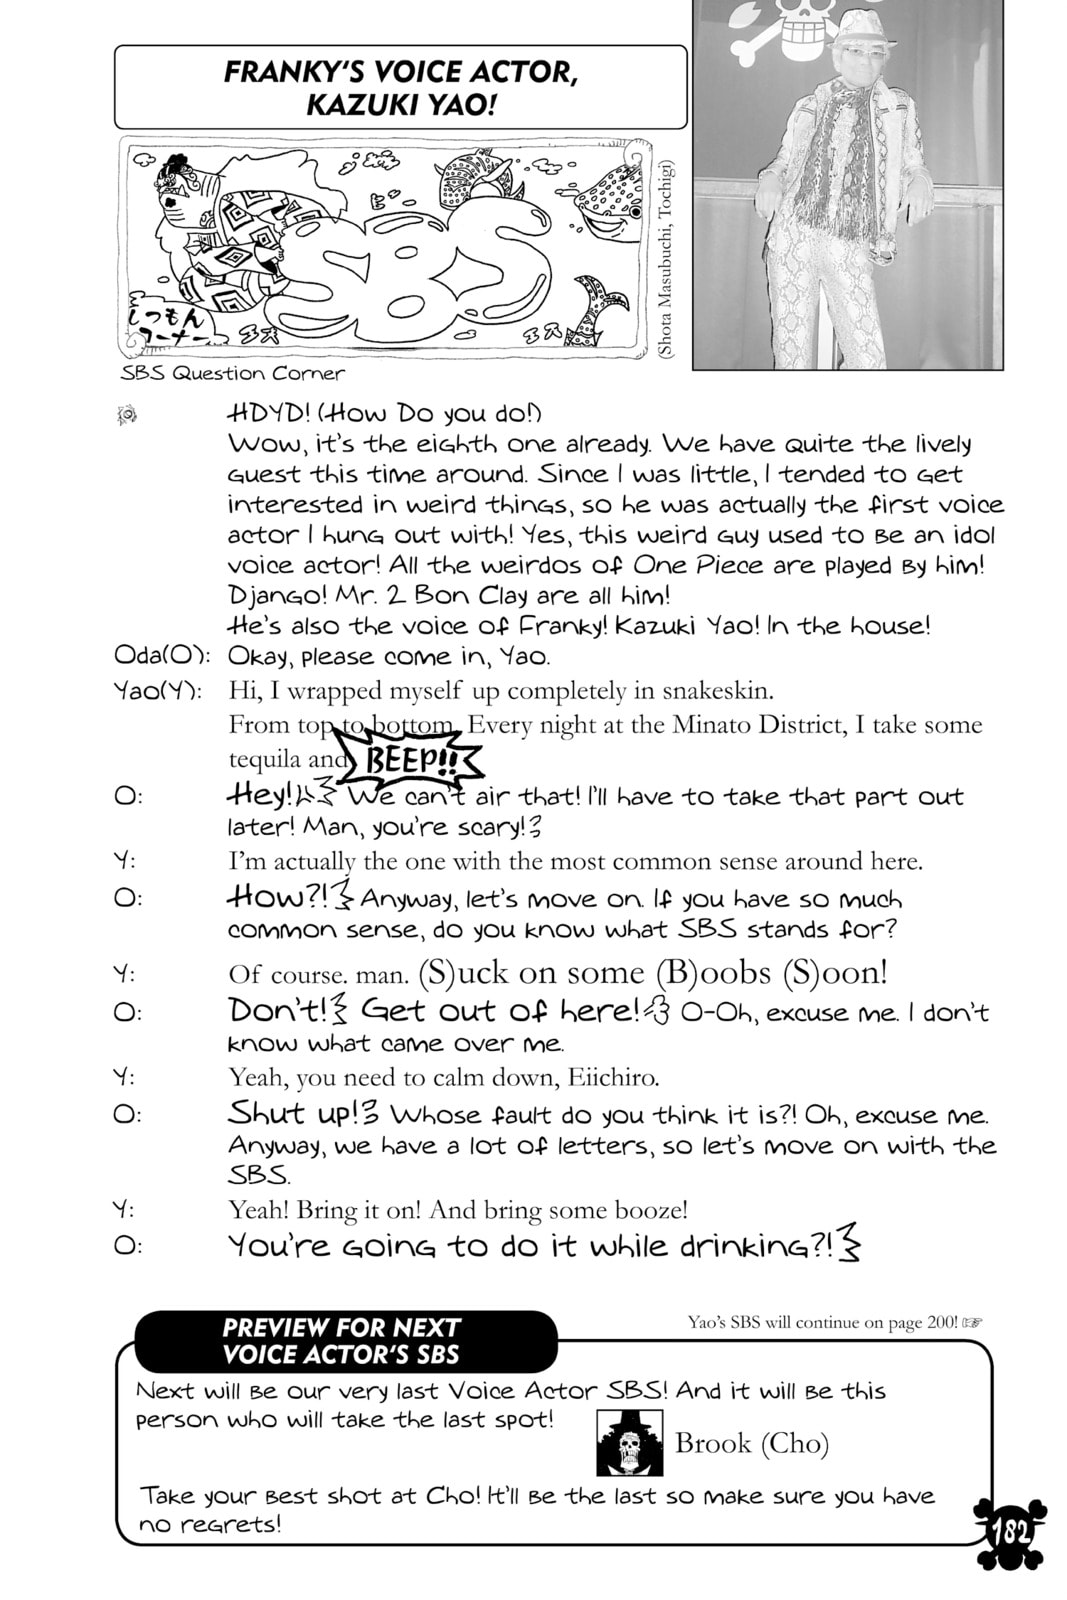 FRANKY'S VOICE ACTOR,
KAZUKI YAO!
SBS
しつもん
コーナー
(Shota Masubuchi, Tochigi)
SBS Question Corner
HDYD! (How Do you do!)
Wow, it's the eighth one already. We have quite the lively
guest this time around. Since I was little, I tended to get
interested in weird things, so he was actually the first voice
actor I hung out with! Yes, this weird guy used to be an idol
voice actor! All the weirdos of One Piece are played by him!
Django! Mr. 2 Bon Clay are all him!
He's also the voice of Franky! Kazuki Yao! In the house!
Oda(O): Okay, please come in, Yao.
Yao(Y): Hi, I wrapped myself up completely in snakeskin.
From top to bottom. Every night at the Minato District, I take some
tequila and BEEP!!
O: Hey! We can't air that! I'll have to take that part out
later! Man, you're scary!
Y: I'm actually the one with the most common sense around here.
O: How?! Anyway, let's move on. If you have so much
common sense, do you know what SBS stands for?
Y: Of course. man. (S)uck on some (B)oobs (S)oon!
O: Don't! Get out of here! O-Oh, excuse me. I don't
know what came over me.
Y: Yeah, you need to calm down, Eiichiro.
O: Shut up! Whose fault do you think it is?! Oh, excuse me.
Anyway, we have a lot of letters, so let's move on with the
SBS.
Y: Yeah! Bring it on! And bring some booze!
O: You're going to do it while drinking?!
Yao's SBS will continue on page 200!
PREVIEW FOR NEXT
VOICE ACTOR'S SBS
Next will be our very last Voice Actor SBS! And it will be this
person who will take the last spot!
Brook (Cho)
Take your best shot at Cho! It'll be the last so make sure you have
no regrets!
182